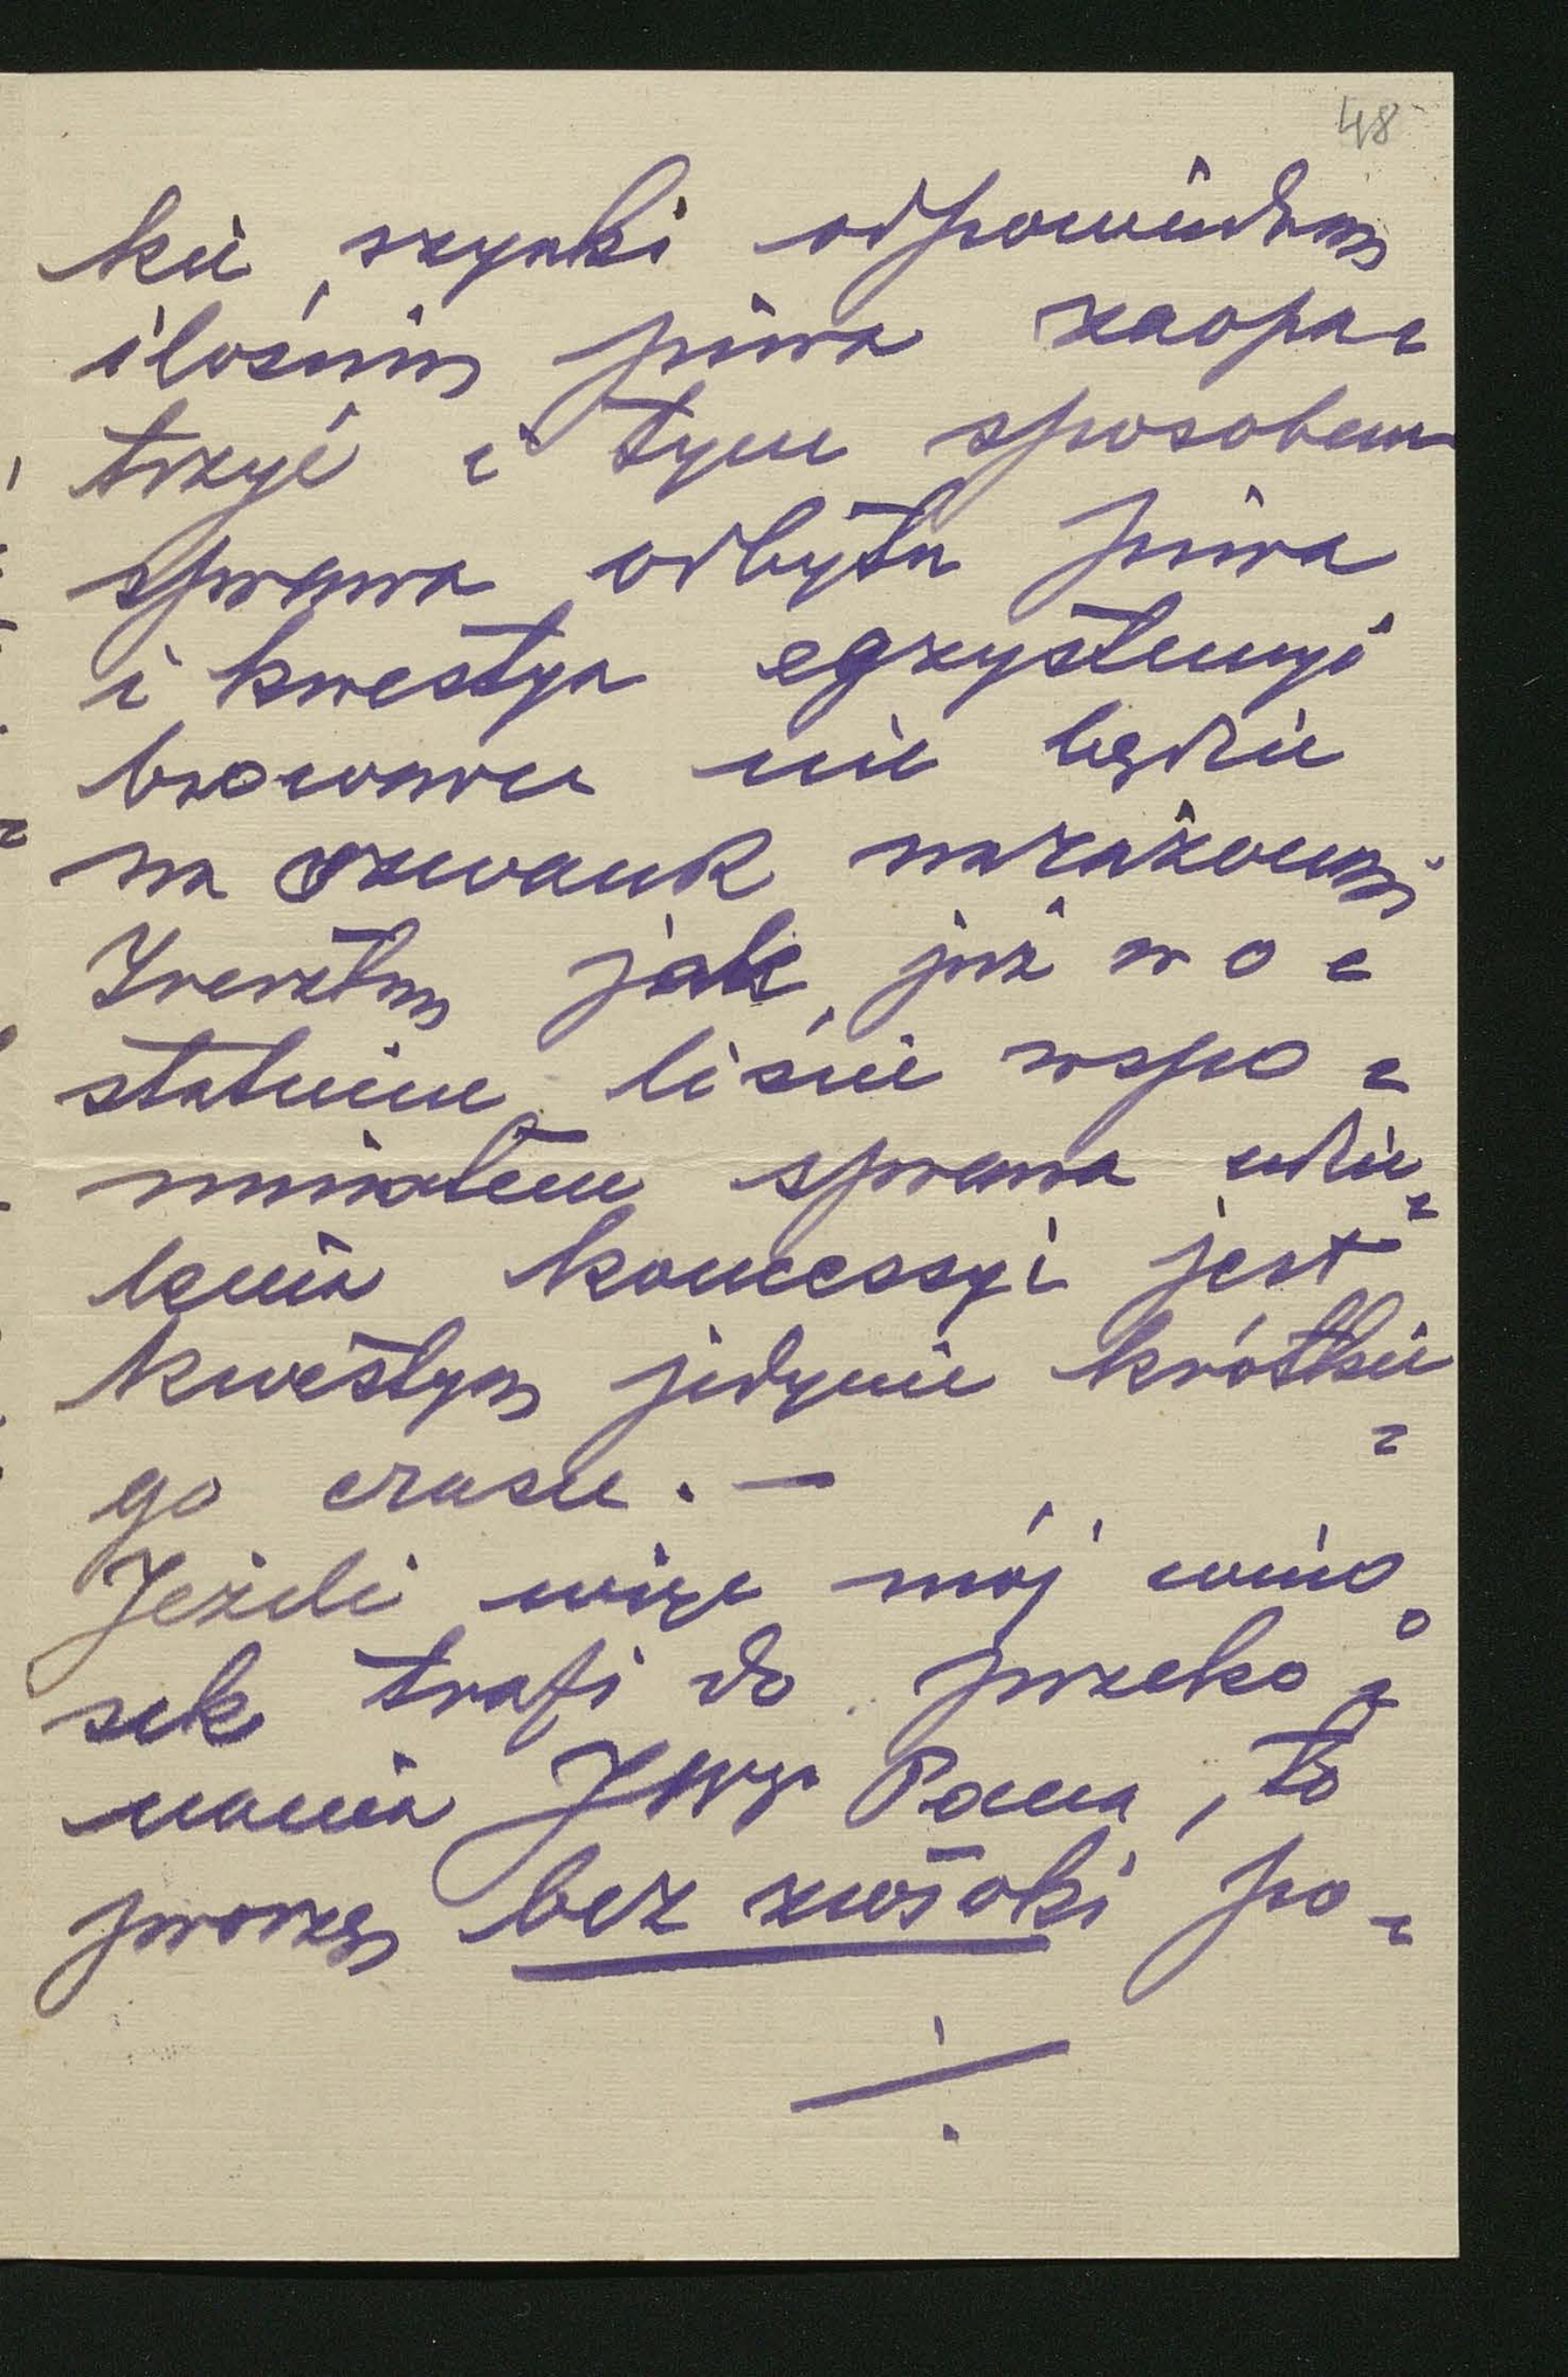 48
kie szynki odpowiednią
ilością piwa zaopa=
trzyć i tym sposobem
sprawa odbytu piwa
i kwestya egzystencyi
browaru nie będzie
na szwank narażoną
Zresztą jak już w o=
statnim liście wspo=
mniałem sprawa udzie=
lenia koncessyi jest
kwestyą jedynie krótkie=
go czasu. —
Jeżeli więc mój wnio=
sek trafi do przeko=
nania JWgo Pana, to
proszę bez zwłoki po=
./.